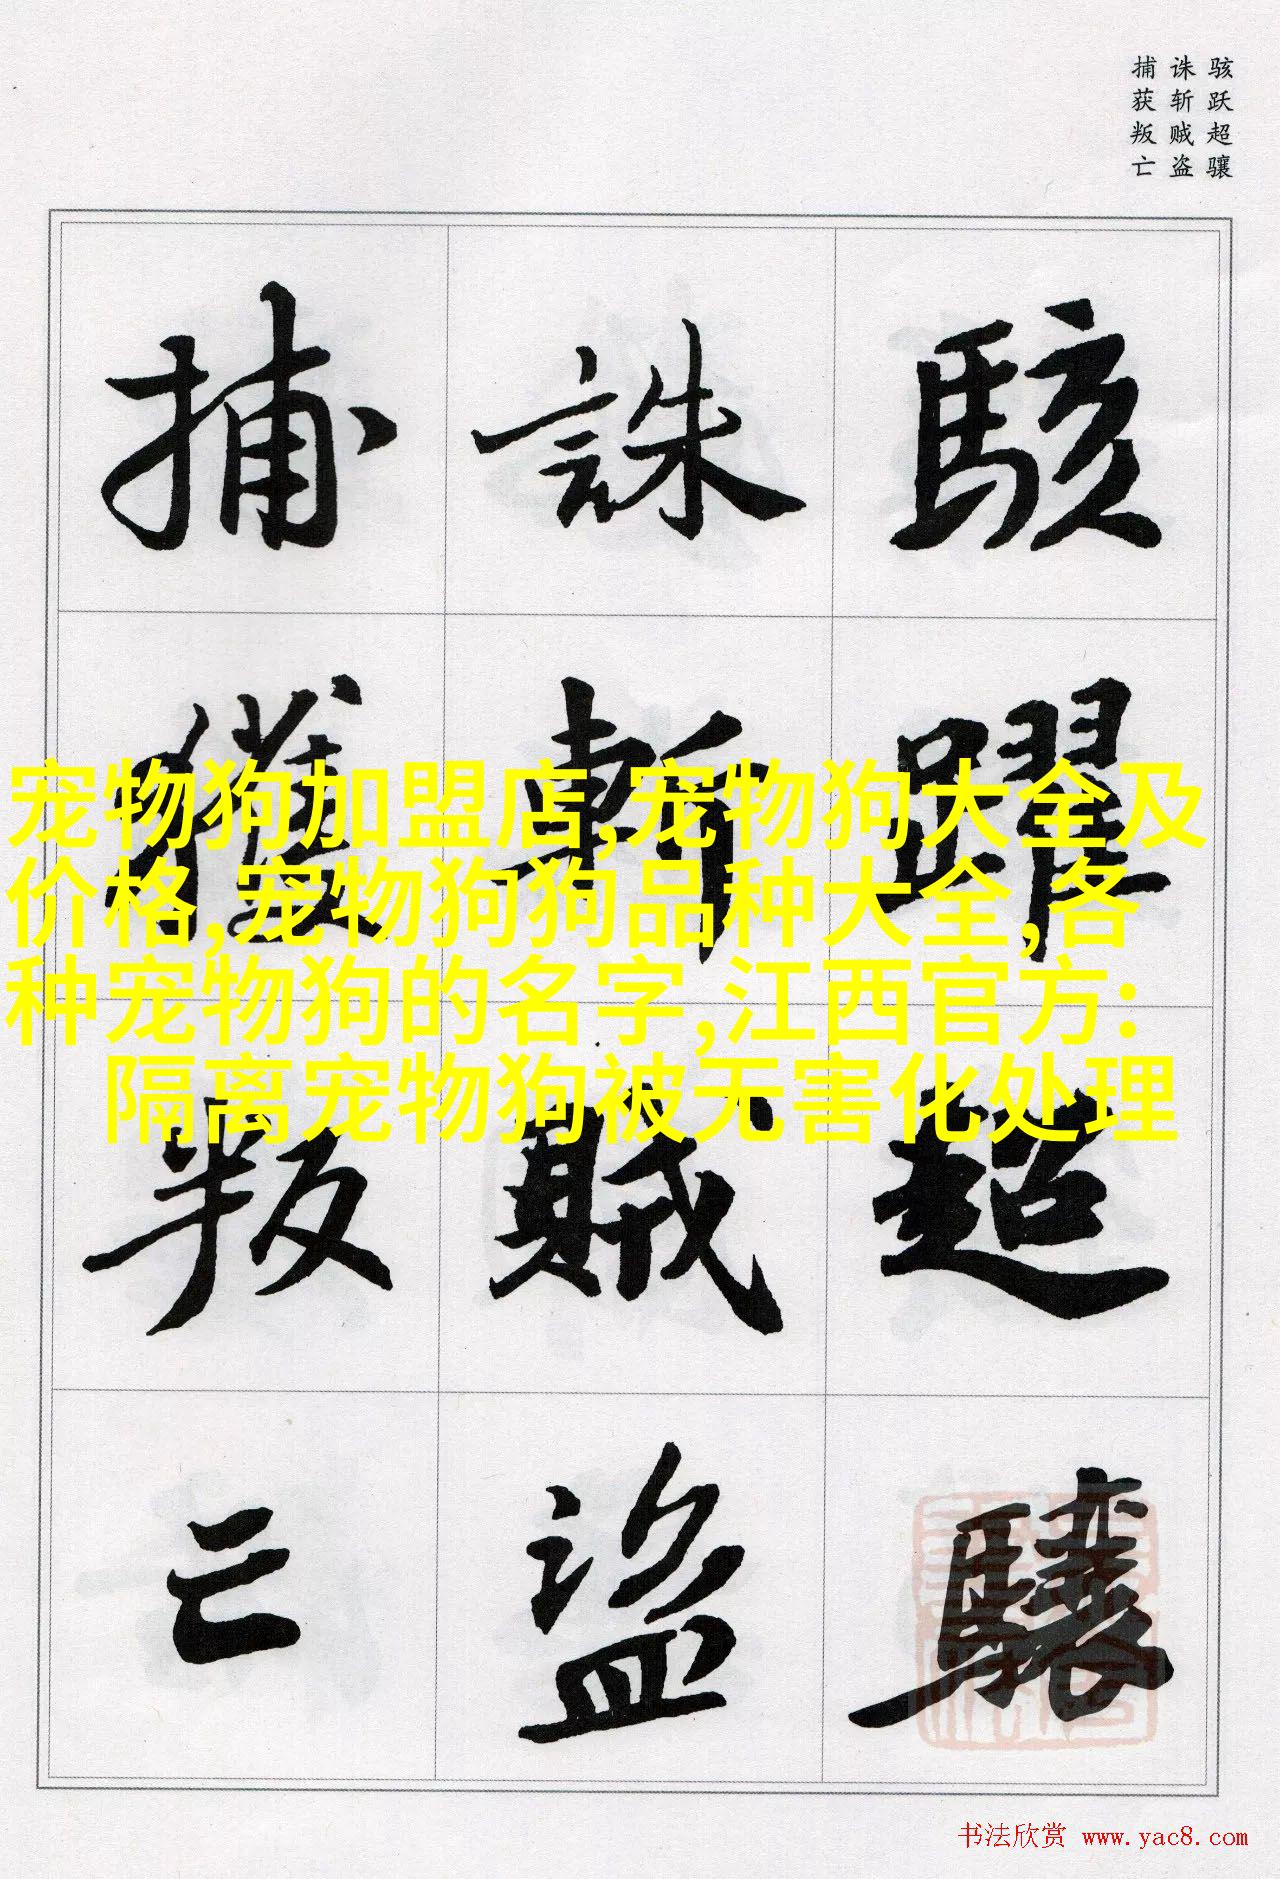 骇跃超骧
诛斩贼盗
捕获叛亡
駭躍超驤
誅斬賊盜
捕獲叛亡
宠物狗加盟店,宠物狗大全及
价格,宠物狗狗品种大全,各
种宠物狗的名字,江西官方:
隔离宠物狗被无害化处理
书法欣赏 www.yac8.com